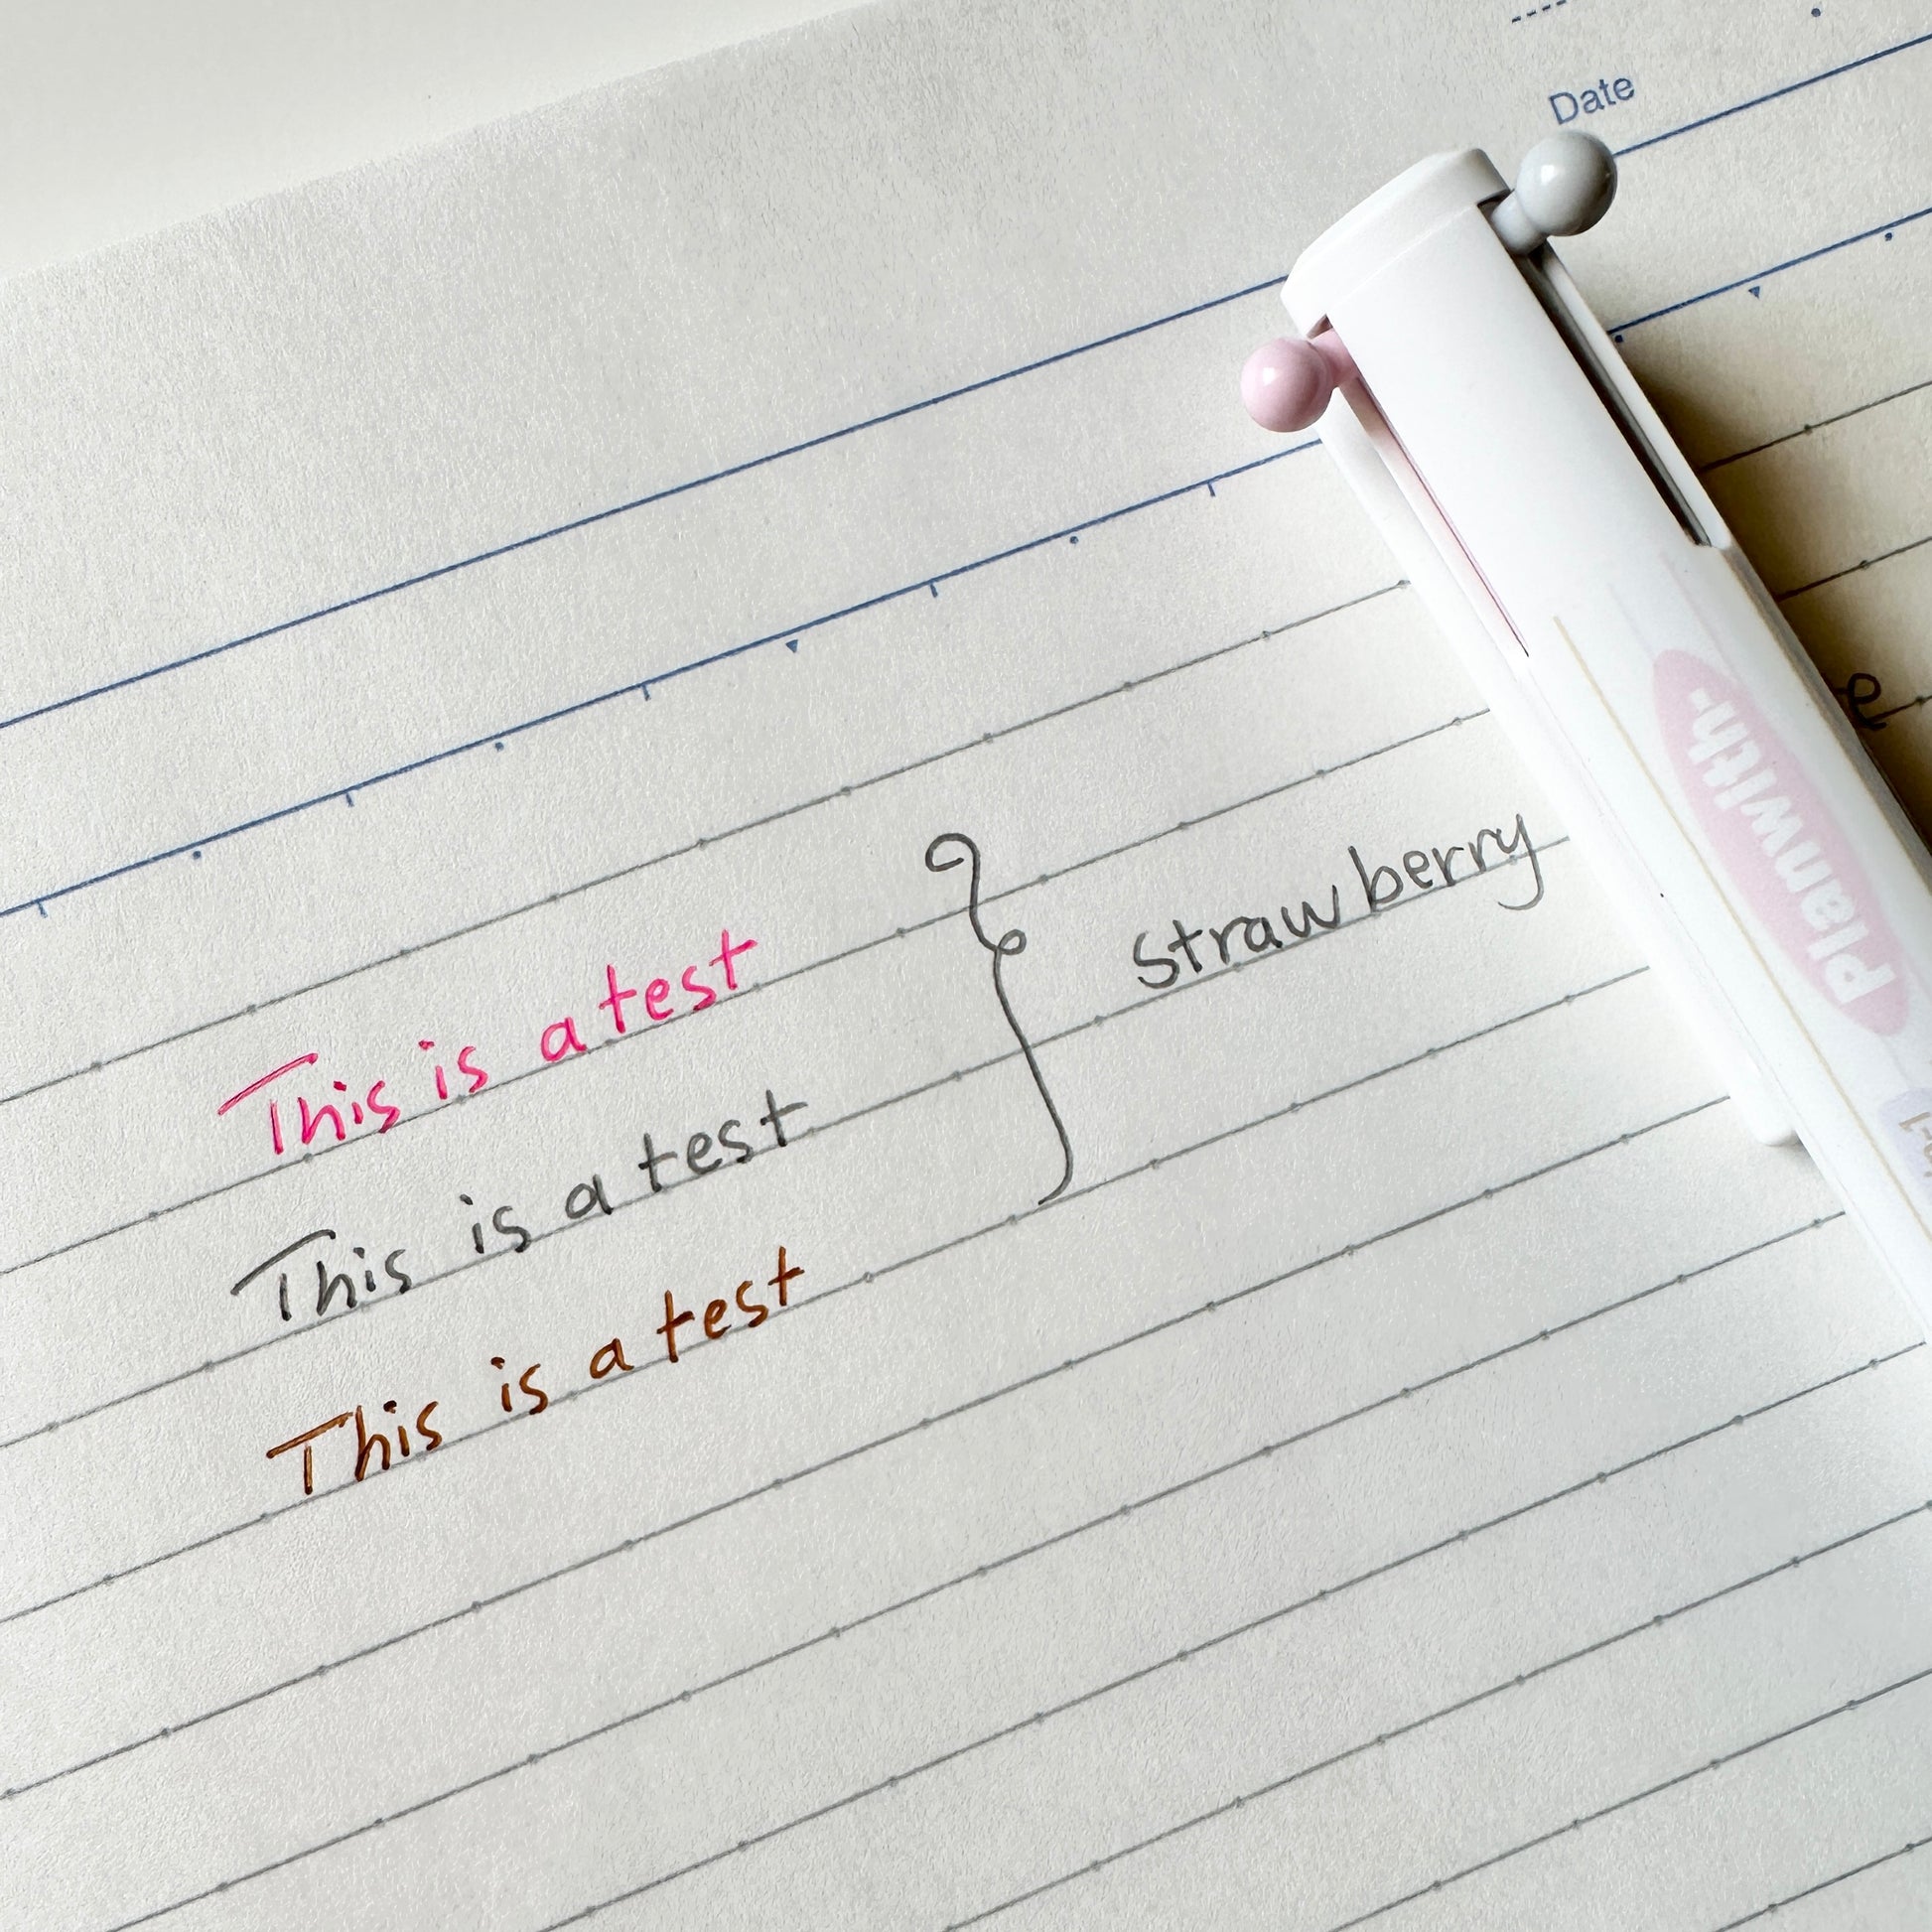 Date
This is a test
This is a test
This is a test
strawberry
Planwith-
e